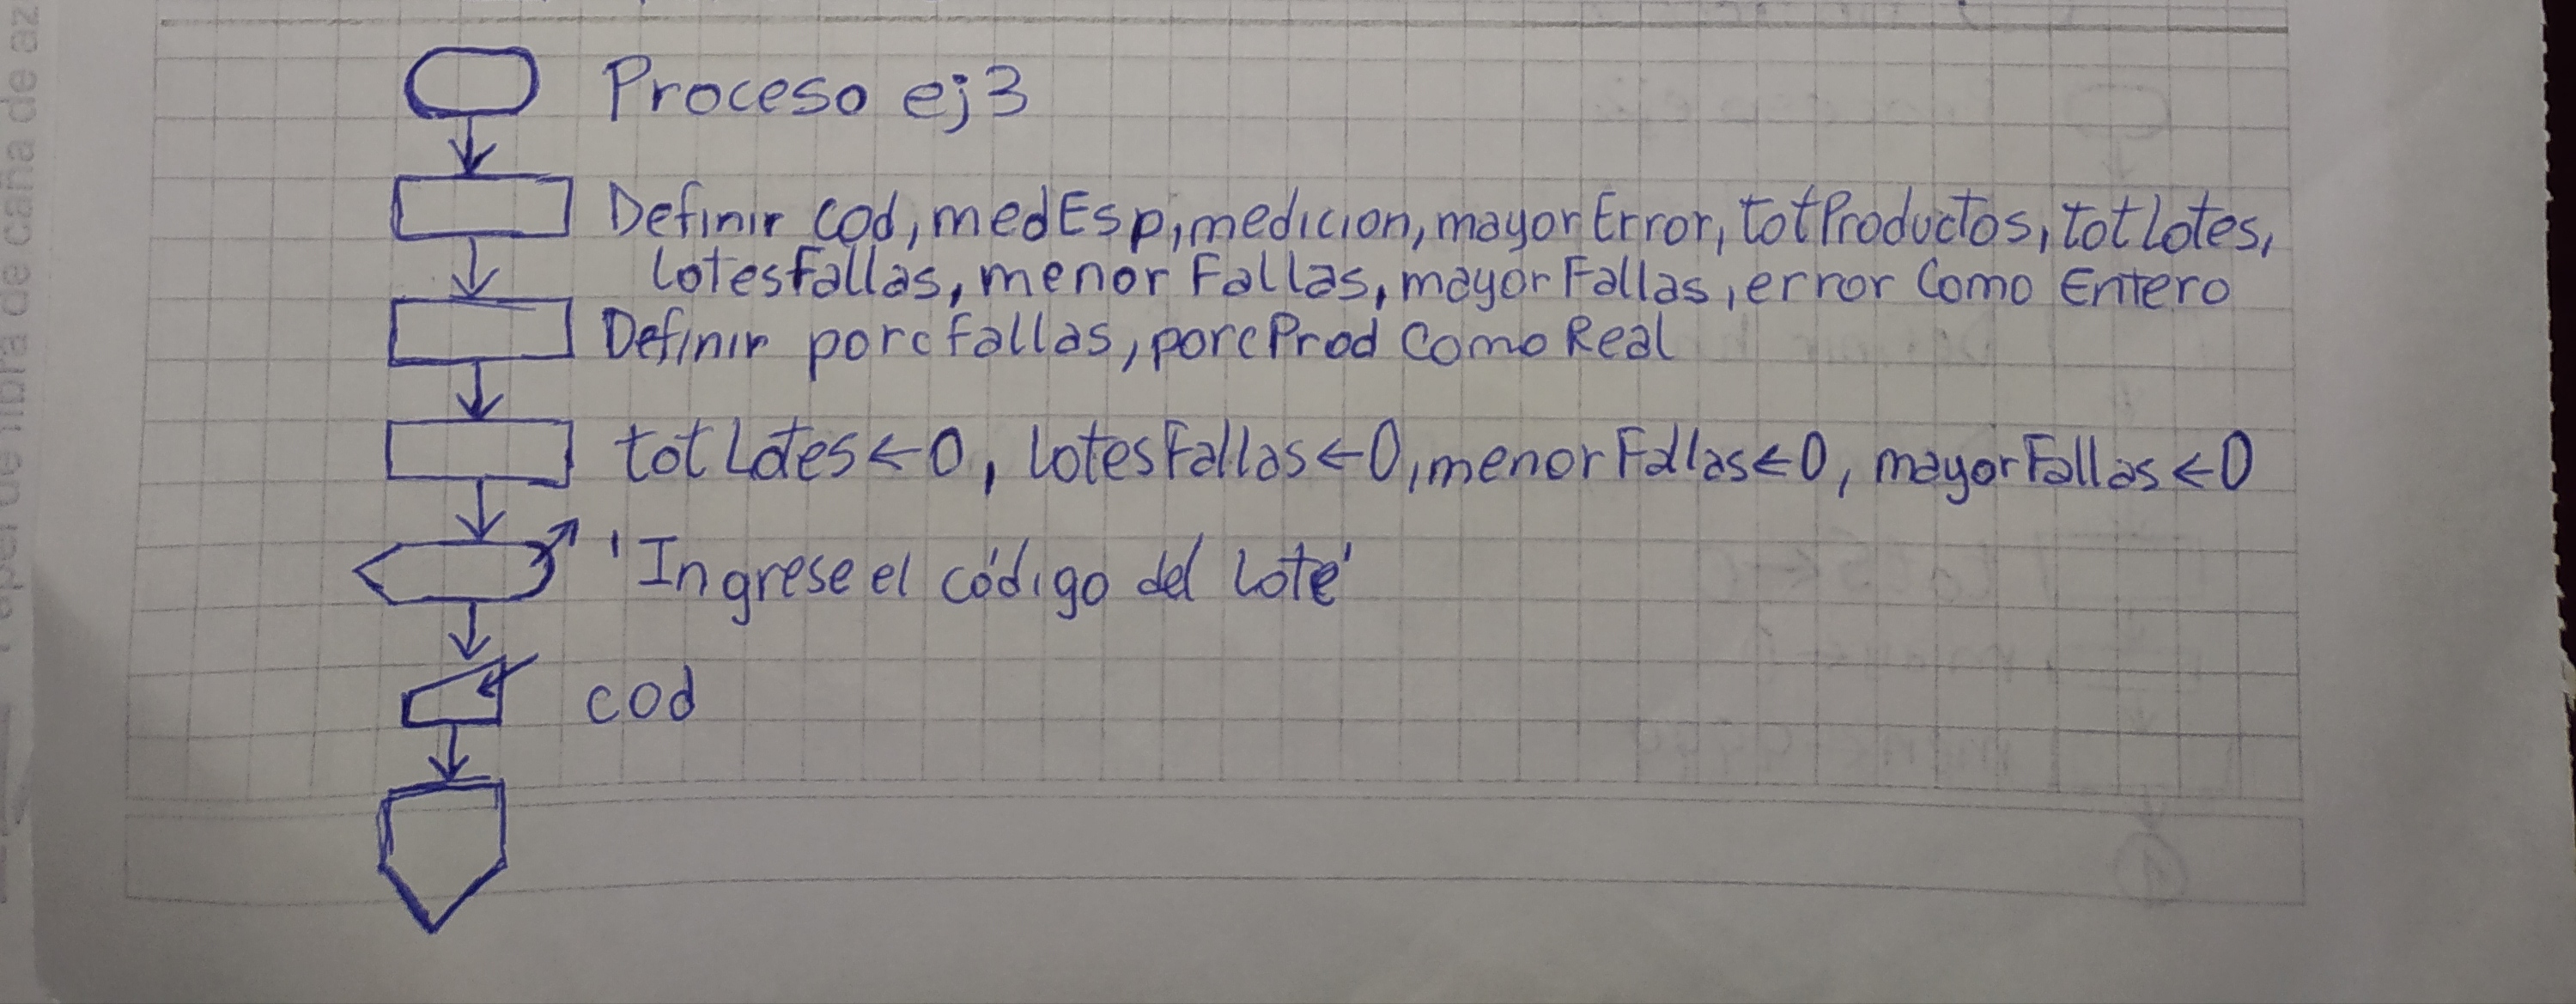 Proceso ej3
Definir cod, medEsp, medicion, mayorError, totProductos, totLotes,
lotesFallas, menorFallas, mayorFallas, error Como Entero
Definir porcFallas, porcProd Como Real
totLotes ← 0, lotesFallas ← 0, menorFallas ← 0, mayorFallas ← 0
'Ingrese el código del lote'
cod